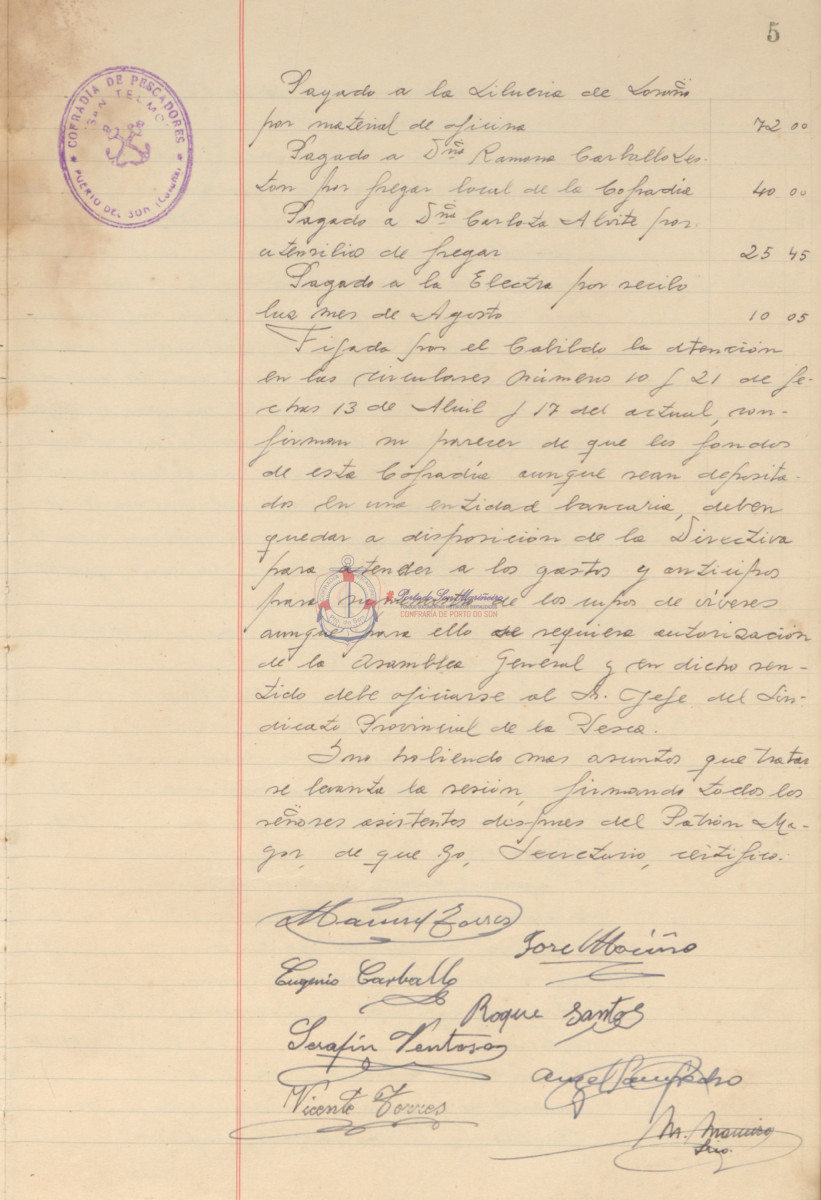 5
COFRADIA DE PESCADORES
"SAN TELMO"
PUERTO DEL SON (Coruña)
Pagado a la Libreria de
por material de oficina 72 00
Pagado a Dña Ramona Carballo Les-
ton por fregar local de la Cofradia 40 00
Pagado a Dña Carlota Alvite por
utensilios de fregar 25 45
Pagado a la Electra por recibo
luz mes de Agosto 10 05
Fijada por el Cabildo la atención
en las circulares números 10 y 21 de fe-
chas 13 de Abril y 17 del actual, con-
firman su parecer de que los fondos
de esta Cofradía aunque sean deposita-
dos en una entidad bancaria, deben
quedar a disposición de la Directiva
para atender a los gastos y anticipos
para suministro de los cupos de viveres
aunque para ello se requiera autorización
de la Asamblea General y en dicho sen-
tido debe oficiarse al Sr. Jefe del Sin-
dicato Provincial de la Pesca.
Y no habiendo mas asuntos que tratar
se levanta la sesión, firmando todos los
señores asistentes despues del Patrón Ma-
yor, de que yo, Secretario, certifico.
CONFRARÍA DE PORTO DO SON
Manuel Torres
José Mociño
Eugenio Carballo
Roque Santos
Serafín Ventoso
Angel Sampedro
Vicente Torres
M.
Srio.